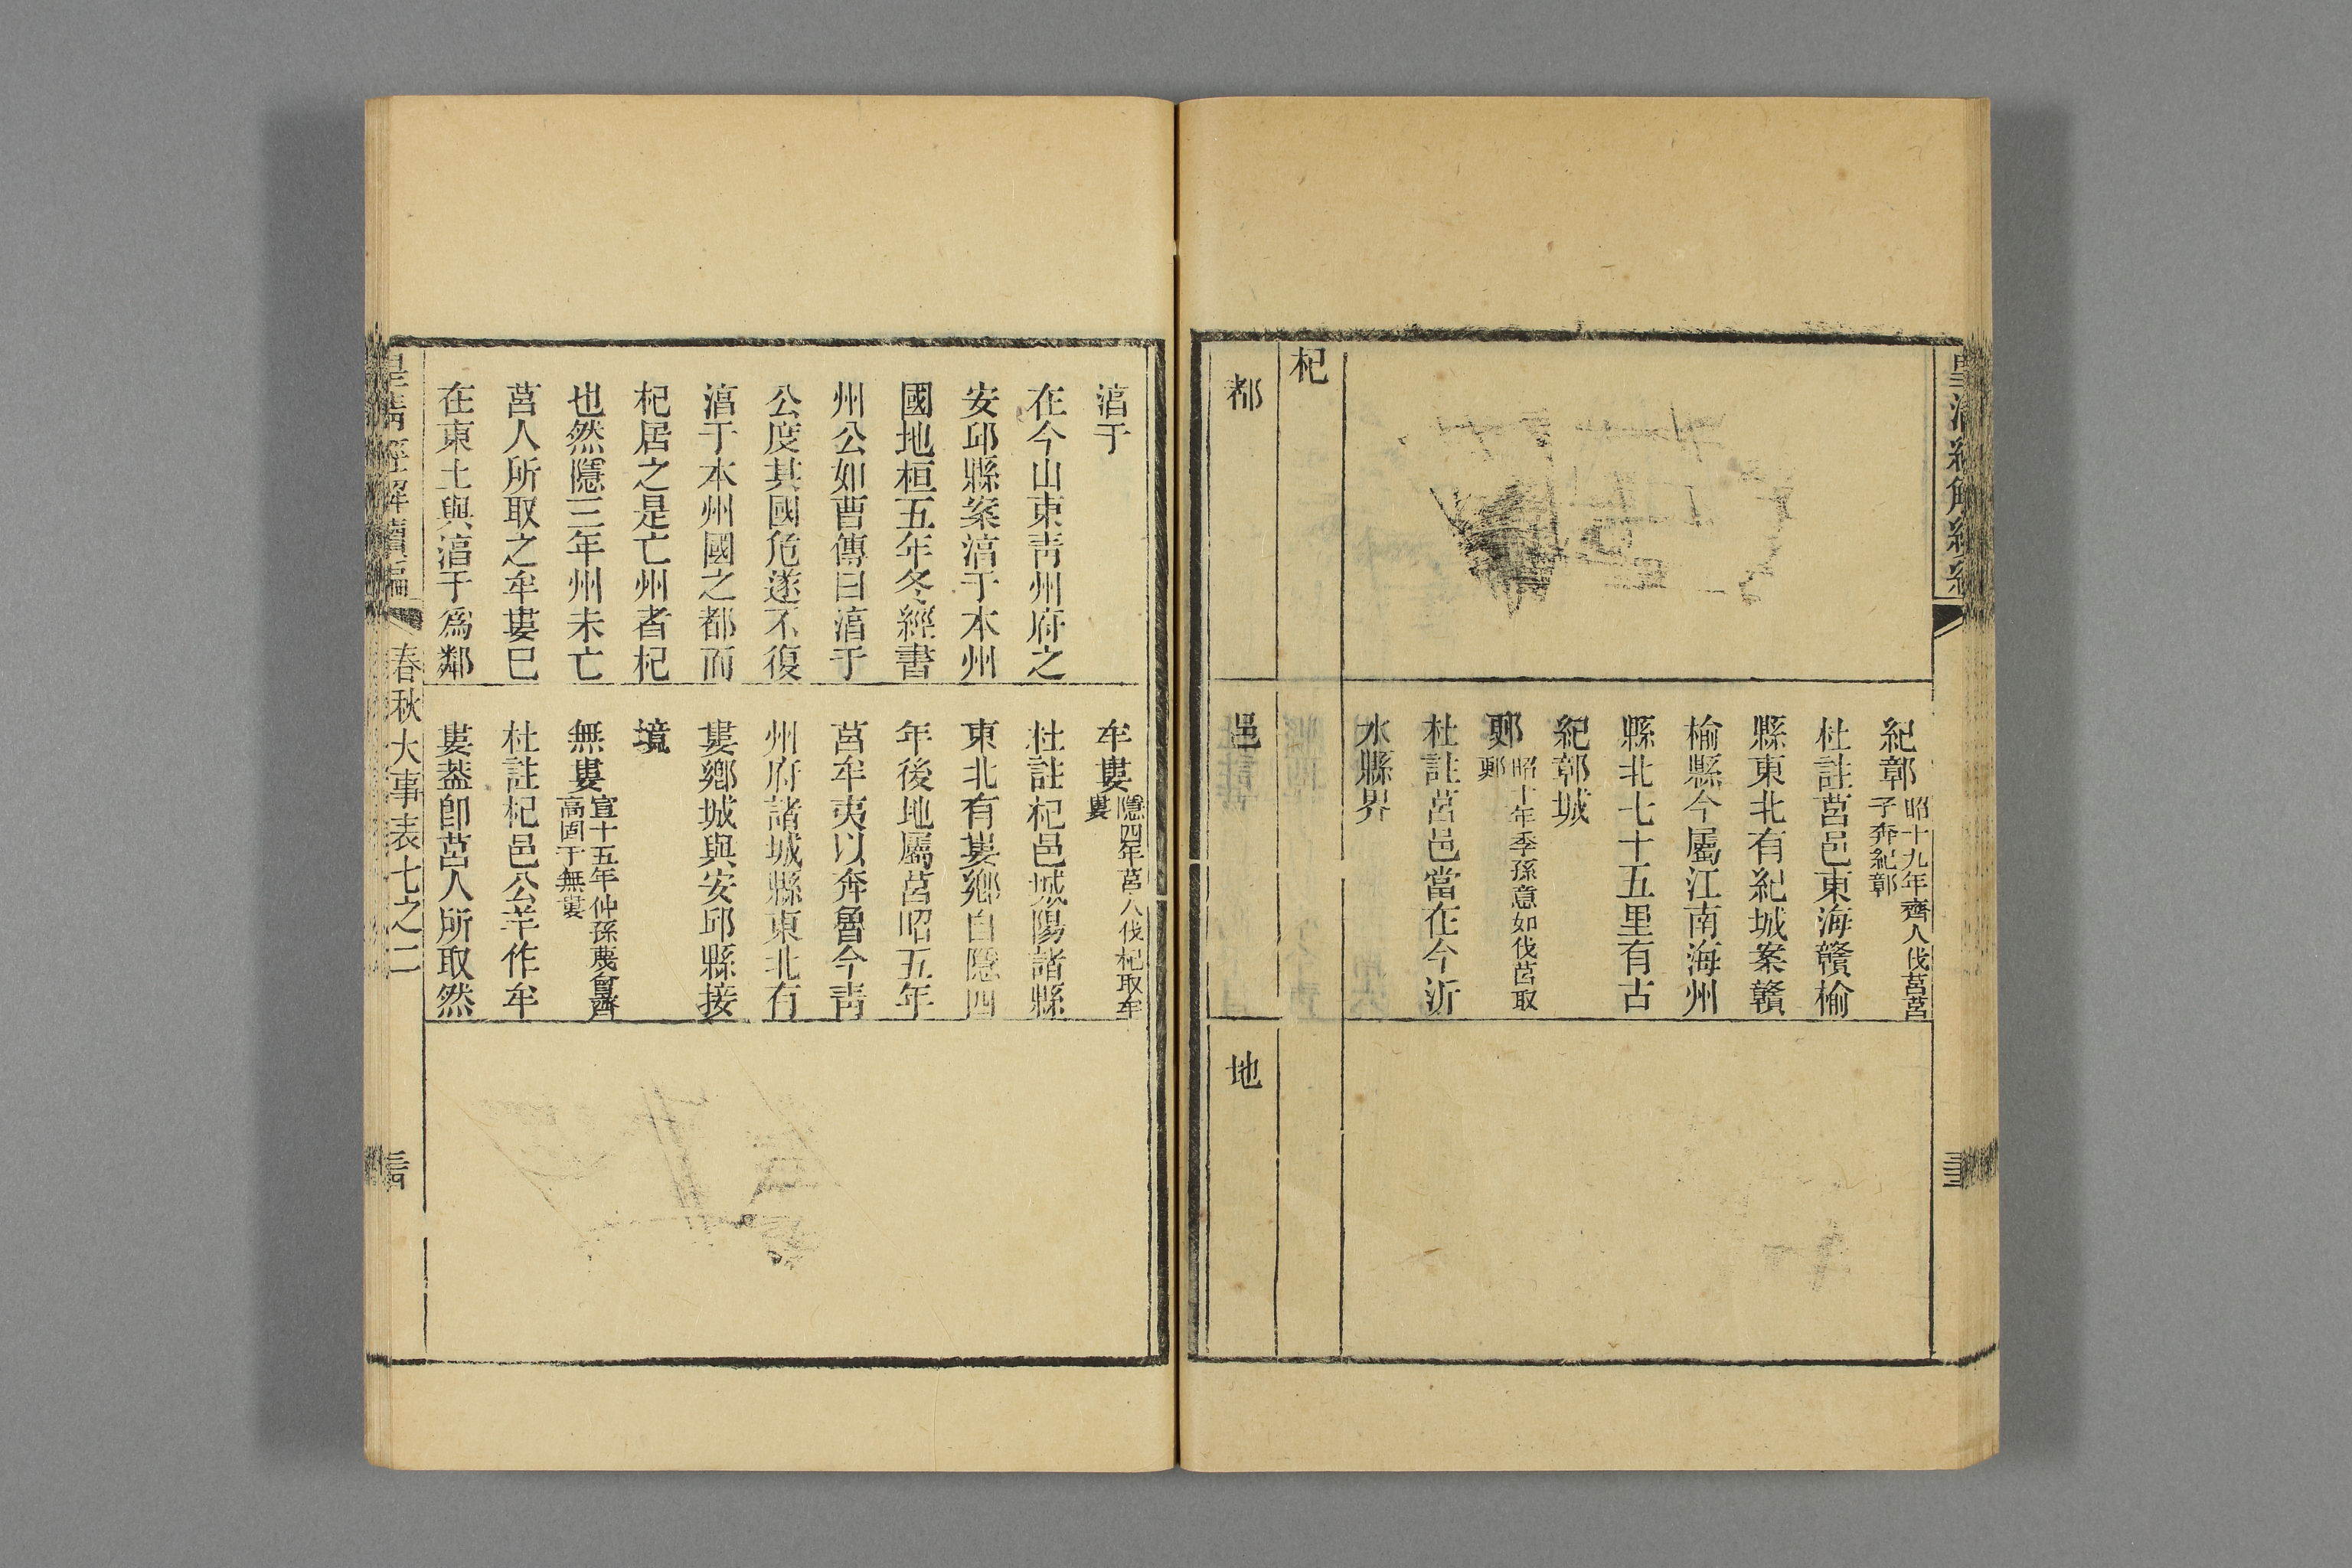 紀鄣昭十九年齊人伐莒莒
子奔紀鄣
杜註莒邑東海贛榆
縣東北有紀城案贛
榆縣今屬江南海州
縣北七十五里有古
紀鄣城
郠昭十年季孫意如伐莒取
郠
杜註莒邑當在今沂
水縣界
杞
都
邑
地
淳于
在今山東靑州府之
安邱縣案淳于本州
國地桓五年冬經書
州公如曹傳曰淳于
公度其國危遂不復
淳于本州國之都而
杞居之是亡州者杞
也然隱三年州未亡
莒人所取之牟婁已
在東土與淳于爲鄰
牟婁隱四年莒人伐杞取牟
婁
杜註杞邑城陽諸縣
東北有婁鄕自隱四
年後地屬莒昭五年
莒牟夷以奔魯今靑
州府諸城縣東北有
婁鄕城與安邱縣接
境
無婁宣十五年仲孫蔑會齊
高固于無婁
杜註杞邑公羊作牟
婁蓋卽莒人所取然
皇淸經解續編
春秋大事表七之二